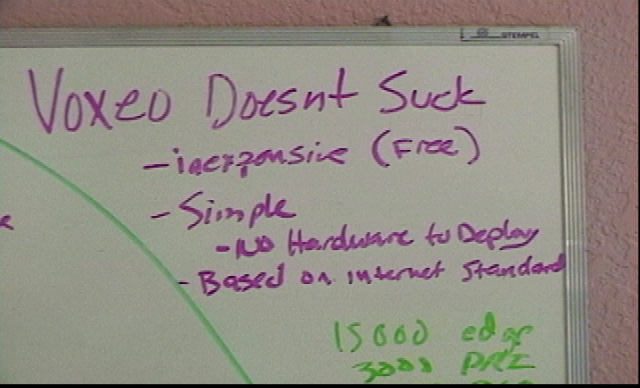 STEMPEL
Voxeo Doesnt Suck
- inexpensive (Free)
- Simple
- No Hardware to Deploy
- Based on internet Standard
15000 edge
3000 PRI